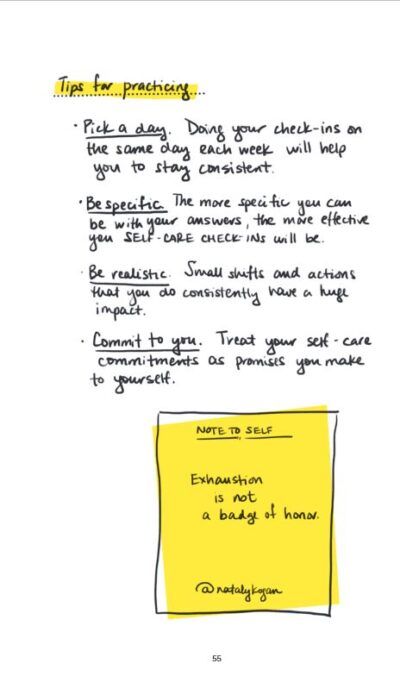 Tips for practicing...
· Pick a day. Doing your check-ins on
the same day each week will help
you to stay consistent.
· Be specific. The more specific you can
be with your answers, the more effective
you SELF-CARE CHECK-INS will be.
· Be realistic. Small shifts and actions
that you do consistently have a huge
impact.
· Commit to you. Treat your self-care
commitments as promises you make
to yourself.
NOTE TO SELF
Exhaustion
is not
a badge of honor.
@natalykogan
55